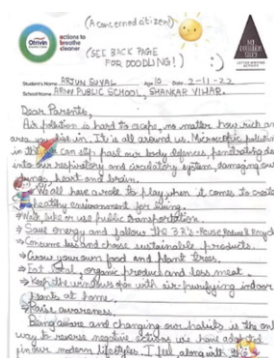 (A concerned citizen)
Otrivin
BREATHE CLEAN
actions to
breathe
cleaner
(SEE BACK PAGE
FOR DOODLING!) :)
Student's Name ARJUN SUYAL Age 10 Date 2-11-22
School Name ARMY PUBLIC SCHOOL, SHANKAR VIHAR.
Dear Parents,
Air pollution is hard to escape, no matter how rich an
area you live in. It is all around us. Microscopic pollutants
in the air can slip past our body defences, penetrating deep
into our respiratory and circulatory system, damaging our
lungs, heart and brain.
We all have a role to play when it comes to create
healthy environment for living.
Walk, bike or use public transportation.
⇒ Save energy and follow the 3 R's - Reuse, Reduce & Recycle
⇒ Consume less and choose sustainable products.
⇒ Grow your own food and plant trees.
⇒ Eat local, organic produce and less meat.
⇒ Keep the windows open with air purifying indoor
plants at home.
⇒ Raise awareness.
Being aware and changing our habits is the only
way to reverse negative actions we have adopted
in our modern lifestyles. I feel along with this